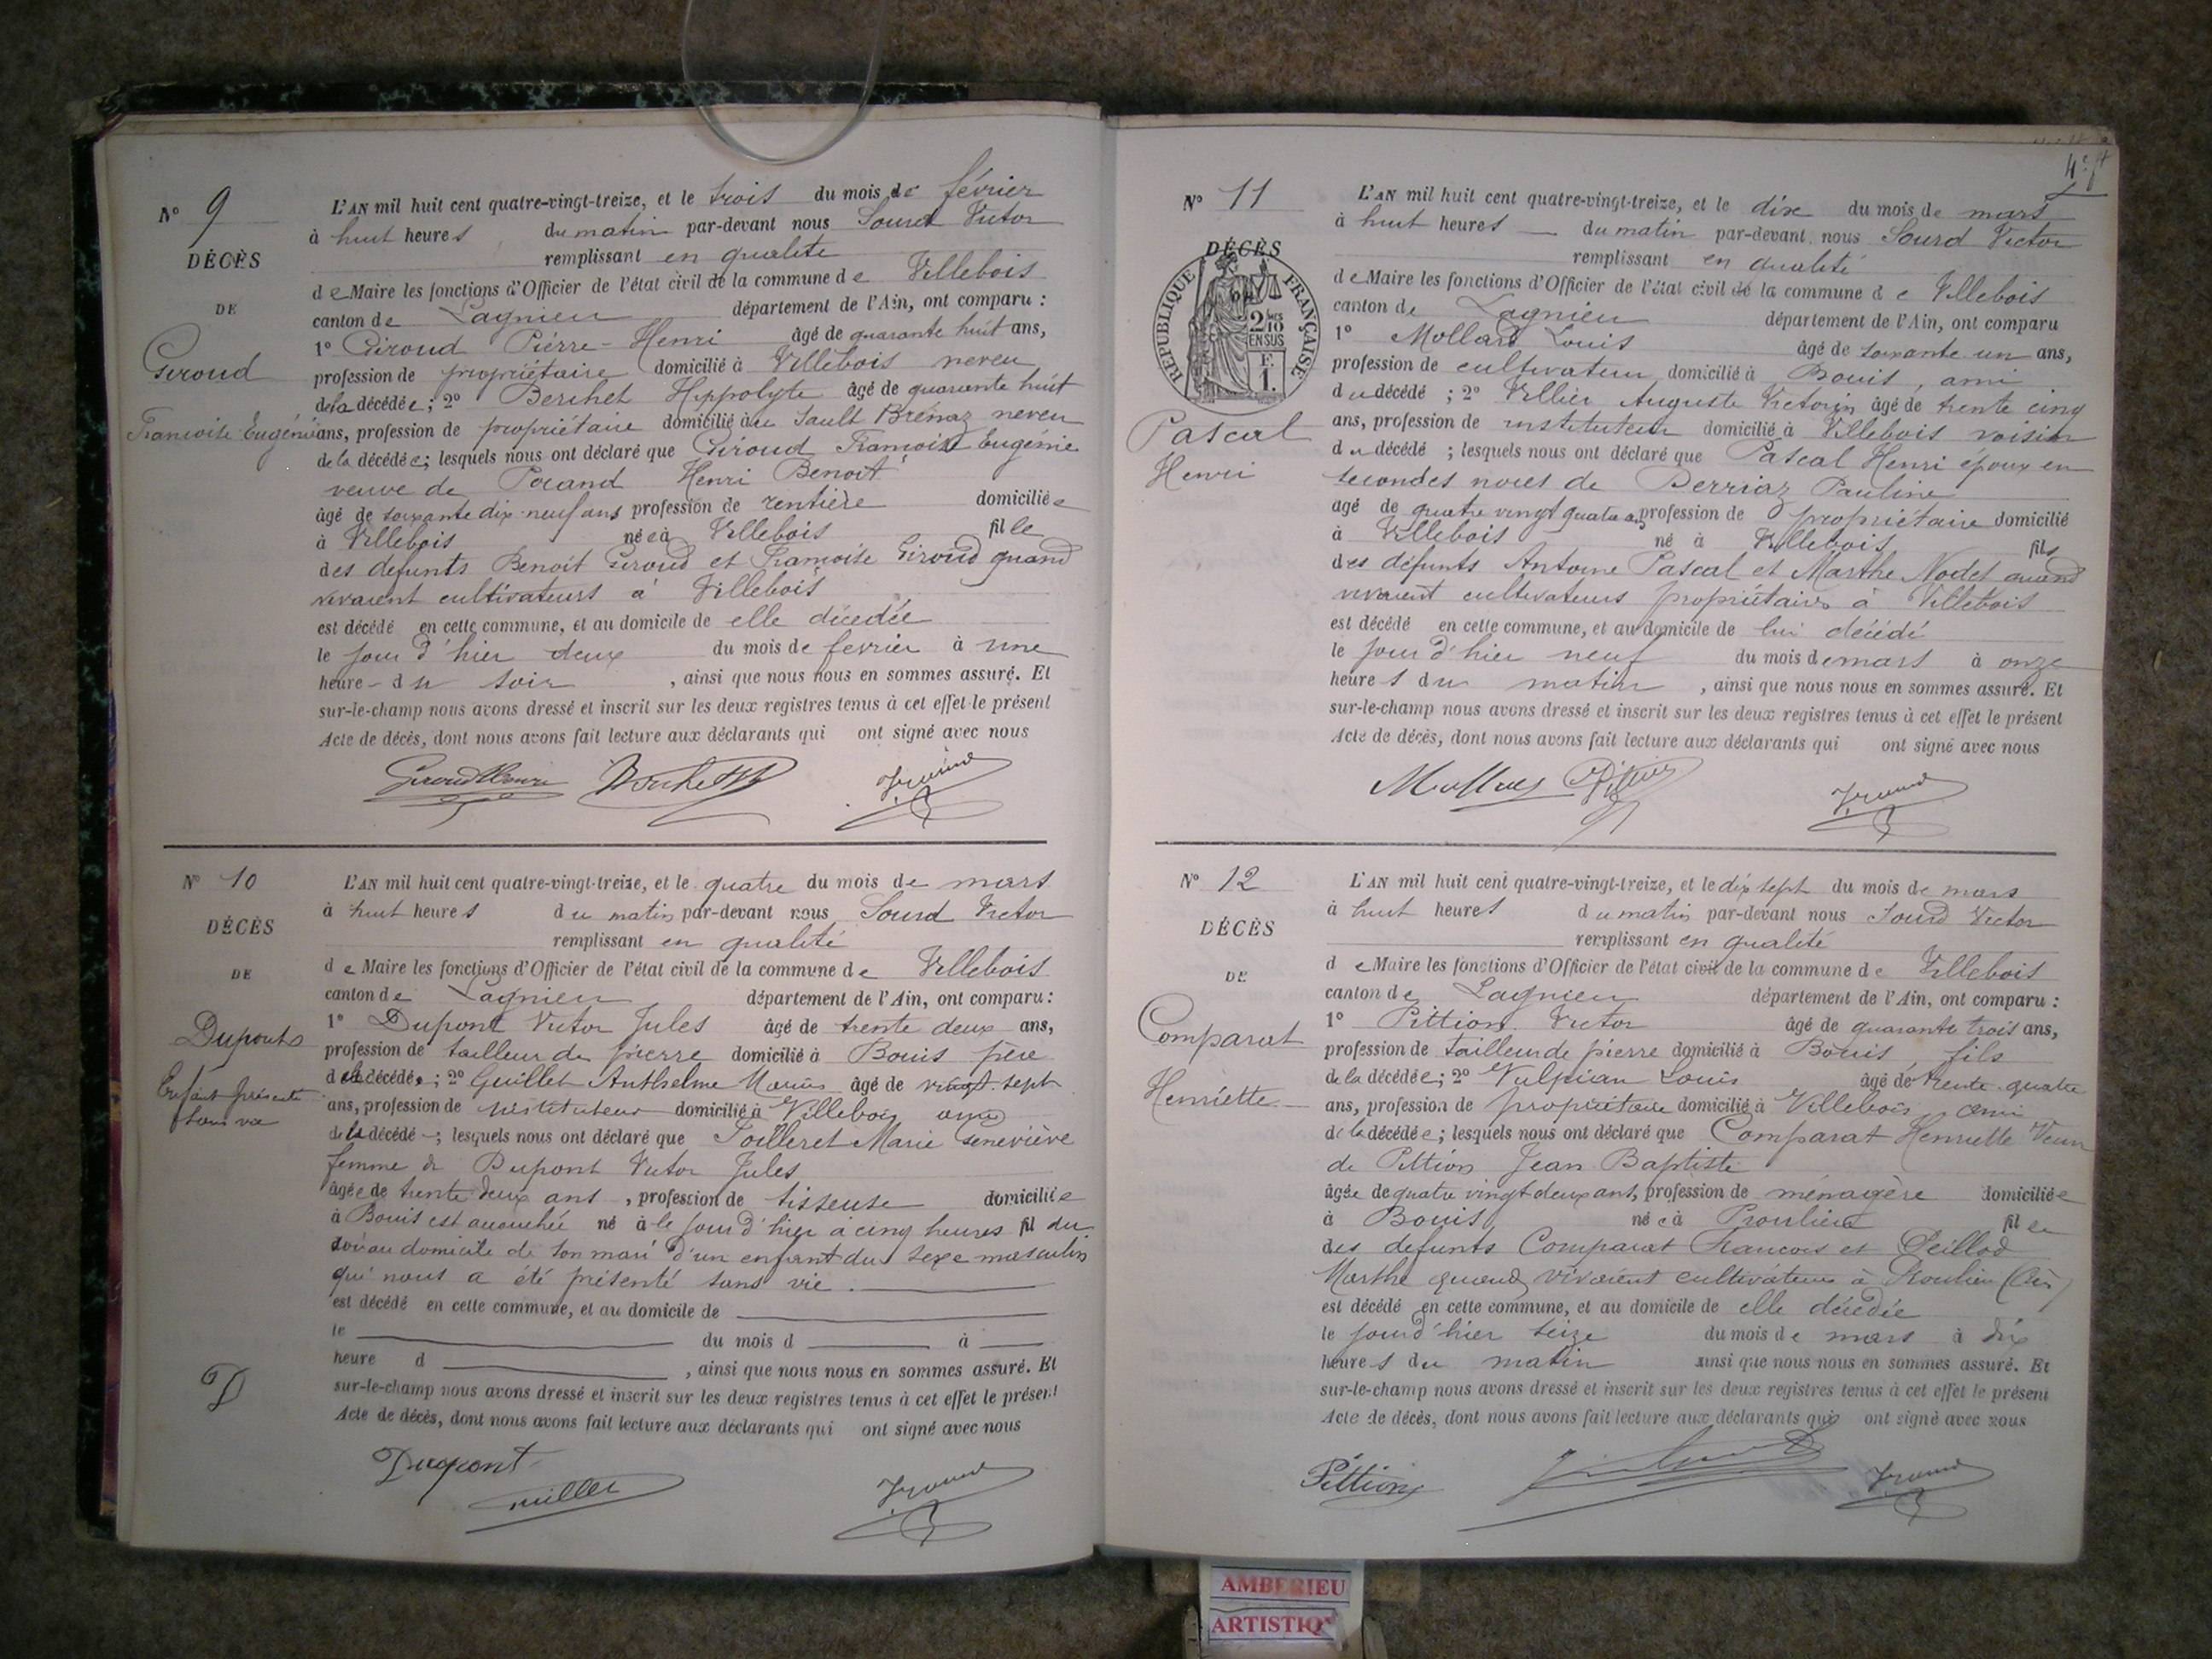 N° 9
DÉCÈS
DE
Giroud
Francoise Eugénie
L'AN mil huit cent quatre-vingt-treize, et le trois du mois de février
à huit heures du matin par-devant nous Sourd Victor
remplissant en qualité
de Maire les fonctions d'Officier de l'état civil de la commune de Villebois
canton de Lagnieu département de l'Ain, ont comparu :
1° Giroud Pierre-Henri âgé de quarante huit ans,
profession de propriétaire domicilié à Villebois neveu
de la décédée ; 2° Berthet Hippolyte âgé de quarante huit
ans, profession de propriétaire domicilié au Sault Brénaz neveu
de la décédée ; lesquels nous ont déclaré que Giroud Francoise Eugénie
veuve de Henri Benoit
âgé de soixante dix-neuf ans profession de rentière domiciliée
à Villebois née à Villebois fille
des defunts Benoit Giroud et Francoise Giroud quand
vivaient cultivateurs à Villebois
est décédé en cette commune, et au domicile de elle décédée
le jour d'hier deux du mois de fevrier à une
heure du soir , ainsi que nous nous en sommes assuré. Et
sur-le-champ nous avons dressé et inscrit sur les deux registres tenus à cet effet le présent
Acte de décès, dont nous avons fait lecture aux déclarants qui ont signé avec nous
Giroud Henri
N° 10
DÉCÈS
DE
Dupont
Enfant présenté
sans vie
L'AN mil huit cent quatre-vingt-treize, et le quatre du mois de mars
à huit heures du matin par-devant nous Sourd Victor
remplissant en qualité
de Maire les fonctions d'Officier de l'état civil de la commune de Villebois
canton de Lagnieu département de l'Ain, ont comparu :
1° Dupont Victor Jules âgé de trente deux ans,
profession de tailleur de pierre domicilié à Bouis père
décédé ; 2° Guillet Anthelme Marius âgé de vingt-sept
ans, profession de instituteur domicilié à Villebois ami
décédé ; lesquels nous ont déclaré que Toilleret Marie Geneviève
femme de Dupont Victor Jules
âgée de trente deux ans , profession de tisseuse domiciliée
à Bouis est accouchée né à le jour d'hier à cinq heures fil du
soir au domicile de son mari d'un enfant du sexe masculin
qui nous a été présenté sans vie.
est décédé en cette commune, et au domicile de
le du mois d à
heure d , ainsi que nous nous en sommes assuré. Et
sur-le-champ nous avons dressé et inscrit sur les deux registres tenus à cet effet le présent
Acte de décès, dont nous avons fait lecture aux déclarants qui ont signé avec nous
Dupont
Guillet
N° 11
DÉCÈS
RÉPUBLIQUE FRANÇAISE
2/10
EN SUS
F.
1.
Pascal
Henri
L'AN mil huit cent quatre-vingt-treize, et le dix du mois de mars
à huit heures du matin par-devant nous Sourd Victor
remplissant en qualité
de Maire les fonctions d'Officier de l'état civil de la commune de Villebois
canton de Lagnieu département de l'Ain, ont comparu
1° Mollard Louis âgé de soixante un ans,
profession de cultivateur domicilié à Bouis, ami
du décédé ; 2° Villier Auguste Victorin âgé de trente cinq
ans, profession de instituteur domicilié à Villebois voisin
du décédé ; lesquels nous ont déclaré que Pascal Henri époux en
secondes noces de Berriaz Pauline
agé de quatre vingt quatre ans profession de propriétaire domicilié
à Villebois né à Villebois fils
des défunts Antoine Pascal et Marthe Nodet quand
vivaient cultivateurs propriétaires à Villebois
est décédé en cette commune, et au domicile de lui décédé
le jour d'hier neuf du mois de mars à onze
heures du matin , ainsi que nous nous en sommes assuré. Et
sur-le-champ nous avons dressé et inscrit sur les deux registres tenus à cet effet le présent
Acte de décès, dont nous avons fait lecture aux déclarants qui ont signé avec nous
N° 12
DÉCÈS
DE
Comparat
Henriette
L'AN mil huit cent quatre-vingt-treize, et le dix sept du mois de mars
à huit heures du matin par-devant nous Sourd Victor
remplissant en qualité
de Maire les fonctions d'Officier de l'état civil de la commune de Villebois
canton de Lagnieu département de l'Ain, ont comparu :
1° Pittion Victor âgé de quarante trois ans,
profession de tailleur de pierre domicilié à Bouis, fils
de la décédée ; 2° Vulpian Louis âgé de trente-quatre
ans, profession de propriétaire domicilié à Villebois, ami
de la décédée ; lesquels nous ont déclaré que Comparat Henriette Veuve
de Pittion Jean Baptiste
âgée de quatre vingt deux ans, profession de ménagère domiciliée
à Bouis née à Proulieu fille
des defunts Comparat Francois et Seillod
Marthe quand vivaient cultivateurs à Proulieu (Ain)
est décédé en cette commune, et au domicile de elle décédée
le jour d'hier seize du mois de mars à dix
heures du matin ainsi que nous nous en sommes assuré. Et
sur-le-champ nous avons dressé et inscrit sur les deux registres tenus à cet effet le présent
Acte de décès, dont nous avons fait lecture aux déclarants qui ont signé avec nous
Pittion
AMBERIEU
ARTISTIQ